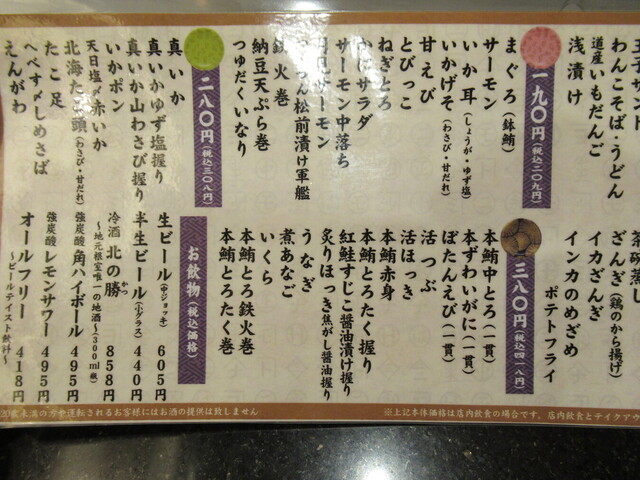 わんこそば・うどん
道産いもだんご
浅漬け
一九〇円(税込二〇九円)
まぐろ(鉢鮪)
サーモン
いか耳(しょうが・ゆず塩)
いかげそ(わさび・甘だれ)
甘えび
とびっこ
ねぎとろ
かにサラダ
サーモン中落ち
サーモン
松前漬け軍艦
鉄火巻
納豆天ぷら巻
つゆだくいなり
二八〇円(税込三〇八円)
真いか
真いかゆず塩握り
真いか山わさび握り
いかポン
天日塩〆赤いか
北海たこ頭(わさび・甘だれ)
たこ足
へべす〆しめさば
えんがわ
茶碗蒸し
ざんぎ(鶏のから揚げ)
イカざんぎ
インカのめざめ
ポテトフライ
三八〇円(税込四一八円)
本鮪中とろ(一貫)
本ずわいがに(一貫)
ぼたんえび(一貫)
活つぶ
活ほっき
本鮪赤身
本鮪とろたく握り
紅鮭すじこ醤油漬け握り
炙りほっき焦がし醤油握り
うなぎ
煮あなご
いくら
本鮪とろ鉄火巻
本鮪とろたく巻
お飲物(税込価格)
生ビール(中ジョッキ) 605円
半生ビール(小グラス) 440円
冷酒 北の勝 858円
かつ
～地元根室唯一の地酒～(300ml瓶)
強炭酸 角ハイボール 495円
強炭酸 レモンサワー 495円
オールフリー 418円
～ビールテイスト飲料～
※上記本体価格は店内飲食の場合です。店内飲食とテイクアウ
運転されるお客様にはお酒の提供は致しません